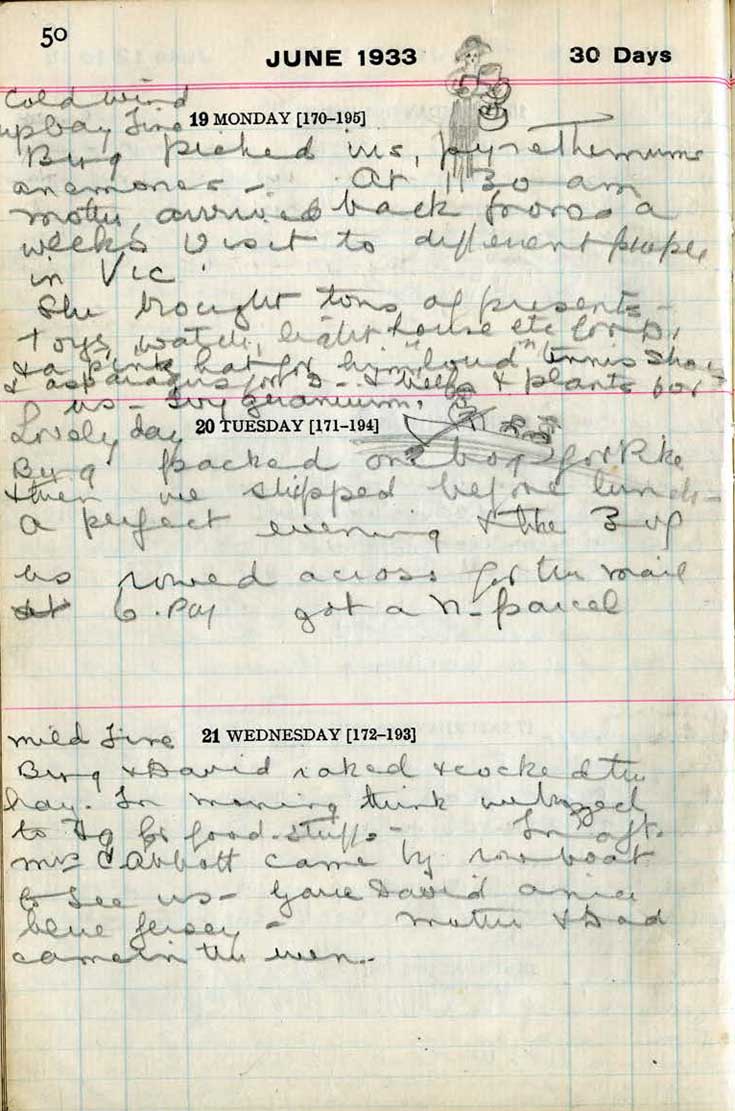 50
JUNE 1933
30 Days
Cold wind
up bay Fine
19 MONDAY [170–195]
Burg picked iris, pyrethemums
anemones - At 11 30 am
mother arrived back from a
weeks visit to different people
in Vic.
She brought tons of presents -
toys, watch, light house etc for D,
& a pink hat for him, "loud" tennis shoes
& asparagus for D - & & plants for
us - Ivy geranium.
Lovely day
20 TUESDAY [171–194]
Burg packed one box for
& then we shipped before lunch -
a perfect evening & the 3 of
us rowed across for the mail
at 6. got a parcel
mild Fine
21 WEDNESDAY [172–193]
Burg & David raked & cocked the
hay. In morning think we
to for food stuffs - In aft.
Mrs C Abbott came by row boat
to see us - Gave David a nice
blue jersey - Mother & Dad
came in the even.